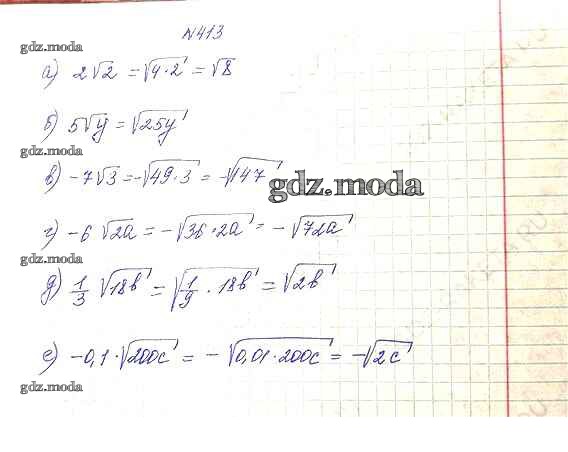 №413
gdz.moda
а) 2√2 = √4·2 = √8
б) 5√y = √25y
gdz.moda
в) -7√3 = -√49·3 = -√147
gdz.moda
г) -6√2a = -√36·2a = -√72a
gdz.moda
д) 1/3 √18b = √1/9 · 18b = √2b
е) -0,1·√200c = -√0,01·200c = -√2c
gdz.moda